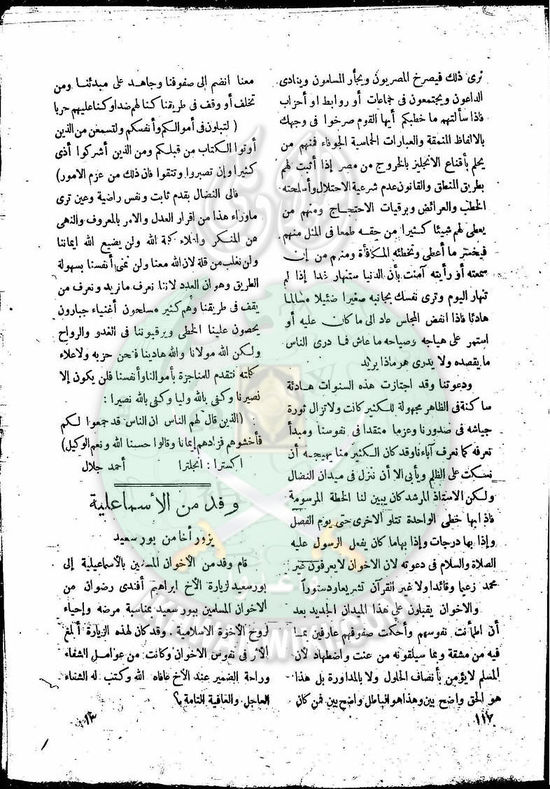 ترى ذلك فيصرخ المصريون ويجأر المسلمون وينادى
الداعون ويجتمعون فى جماعات أو روابط او أحزاب
فاذا سألتهم ما خطبكم أيها القوم صرخوا فى وجهك
بالالفاظ المنمقة والعبارات الحماسية الجوفاء فمنهم من
يحلم بأقناع الانجليز بالخروج من مصر إذا أثبت لهم
بطريق المنطق والقانون عدم شرعية الاحتلال وأسلحته
الخطب والعرائض وبرقيات الاحتجاج ومنهم من
يعطى لهم شيئا كثيرا من حقه طمعا فى المثل منهم
فيخسر ما أعطى وتخطئه المكافأة ومنهم من إن
سمعته أو رأيته آمنت بأن الدنيا ستنهار غدا إذا لم
تنهار اليوم وترى نفسك بجانبه صغيرا ضئيلا مسالما
هادئا فاذا انفض المجلس عاد الى ما كان عليه أو
استمر على هياجه وصياحه ما عاش فما درى الناس
ما يقصده ولا يدرى هو ماذا يريد
ودعوتنا وقد اجتازت هذه السنوات هادئة
ساكنة فى الظاهر مجهولة للكثير كانت ولاتزال ثورة
جياشه فى صدورنا وعزما متقدا فى نفوسنا ومبدأ
نعرفه كما نعرف آباءنا وقد كان الكثير منا يهيجه أن
نسكت على الظلم ويأبى الا أن ننزل فى ميدان النضال
ولكن الاستاذ المرشد كان يبين لنا الخطة المرسومة
فاذا بها خطى الواحدة تتلو الاخرى حتى يوم الفصل
وإذا بها درجات وإذا بها كما كان يفعل الرسول عليه
الصلاة والسلام فى دعوته لان الاخوان لا يعرفون غير
محمد زعيما وقائدا ولا غير القرآن تشريعا ودستورا
والاخوان يقبلون على هذا الميدان الجديد بعد
أن اطمأنت نفوسهم وأحكمت صفوفهم عارفين بما
فيه من مشقة وبما سيلقونه من عنت واضطهاد لأن
المسلم لا يؤمن بأنصاف الحلول ولا بالمداورة بل هذا
هو الحق واضح بين وهذا هو الباطل واضح بين فمن كان
معنا انضم إلى صفوفنا وجاهد على مبدئنا ومن
تخلف أو وقف فى طريقنا كنا لهم ضدا وكنا عليهم حربا
( لتبلون فى أموالكم وأنفسكم ولتسمعن من الذين
أوتوا الكتاب من قبلكم ومن الذين أشركوا أذى
كثيرا وإن تصبروا وتتقوا فان ذلك من عزم الامور )
فالى النضال بقدم ثابت ونفس راضية وعين ترى
ماوراء هذا من اقرار العدل والامر بالمعروف والنهى
عن المنكر وإعلاء كلمة الله ولن يضيع الله إيماننا
ولن نغلب من قلة لان الله معنا ولن نمنى أنفسنا بسهولة
الطريق وهوان العدد لاننا نعرف مانريد ونعرف من
يقف فى طريقنا وهم كثير مسلحون أغنياء جبارون
يحصون علينا الخطى ويرقبوننا فى الغدو والرواح
ولكن الله مولانا والله هادينا فنحن حزبه ولاعلاء
كلمته نتقدم للمناجزة بأموالنا وأنفسنا فلن يكون إلا
نصيرنا وكفى بالله وليا وكفى بالله نصيرا :
(الذين قال لهم الناس ان الناس قد جمعوا لكم
فأخشوهم فزادهم إيمانا وقالوا حسبنا الله ونعم الوكيل)
اكسترا : انجلترا أحمد جلال
وفد من الأسماعلية
يزور أخا من بور سعيد
قام وفد من الأخوان المسلمين بالأسماعيلية إلى
بورسعيد لزيارة الأخ ابراهيم أفندى رضوان من
الأخوان المسلمين ببور سعيد بمناسبة مرضه وإحياء
لروح الأخوة الاسلامية . وقد كان لهذه الزيارة أبلغ
الأثر فى نفوس الاخوان وكانت من عوامل الشفاء
وراحة الضمير عند الأخ عافاه الله وكتب له الشفاء
العاجل والعافية التامة ؟
١١٧
١٣